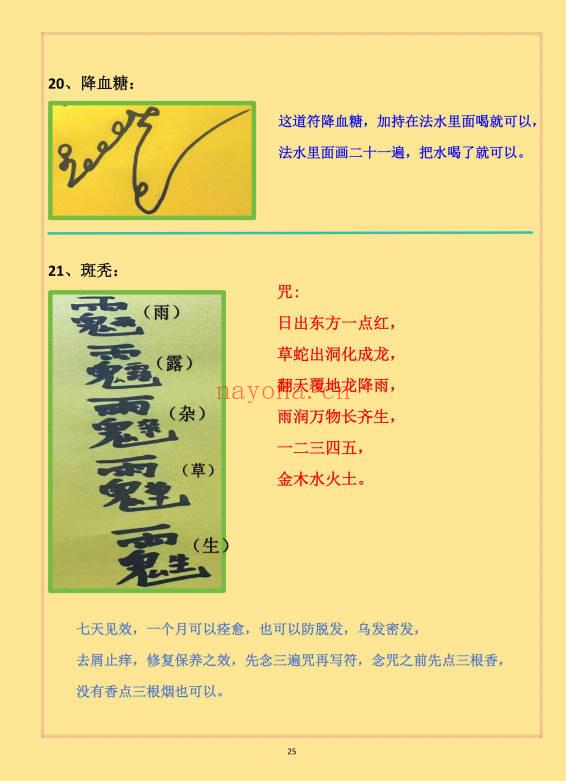 20、降血糖：
这道符降血糖，加持在法水里面喝就可以，
法水里面画二十一遍，把水喝了就可以。
21、斑秃：
（雨）
（露）
（杂）
（草）
（生）
咒：
日出东方一点红，
草蛇出洞化成龙，
翻天覆地龙降雨，
雨润万物长齐生，
一二三四五，
金木水火土。
nayona.cn
七天见效，一个月可以痊愈，也可以防脱发，乌发密发，
去屑止痒，修复保养之效，先念三遍咒再写符，念咒之前先点三根香，
没有香点三根烟也可以。
25